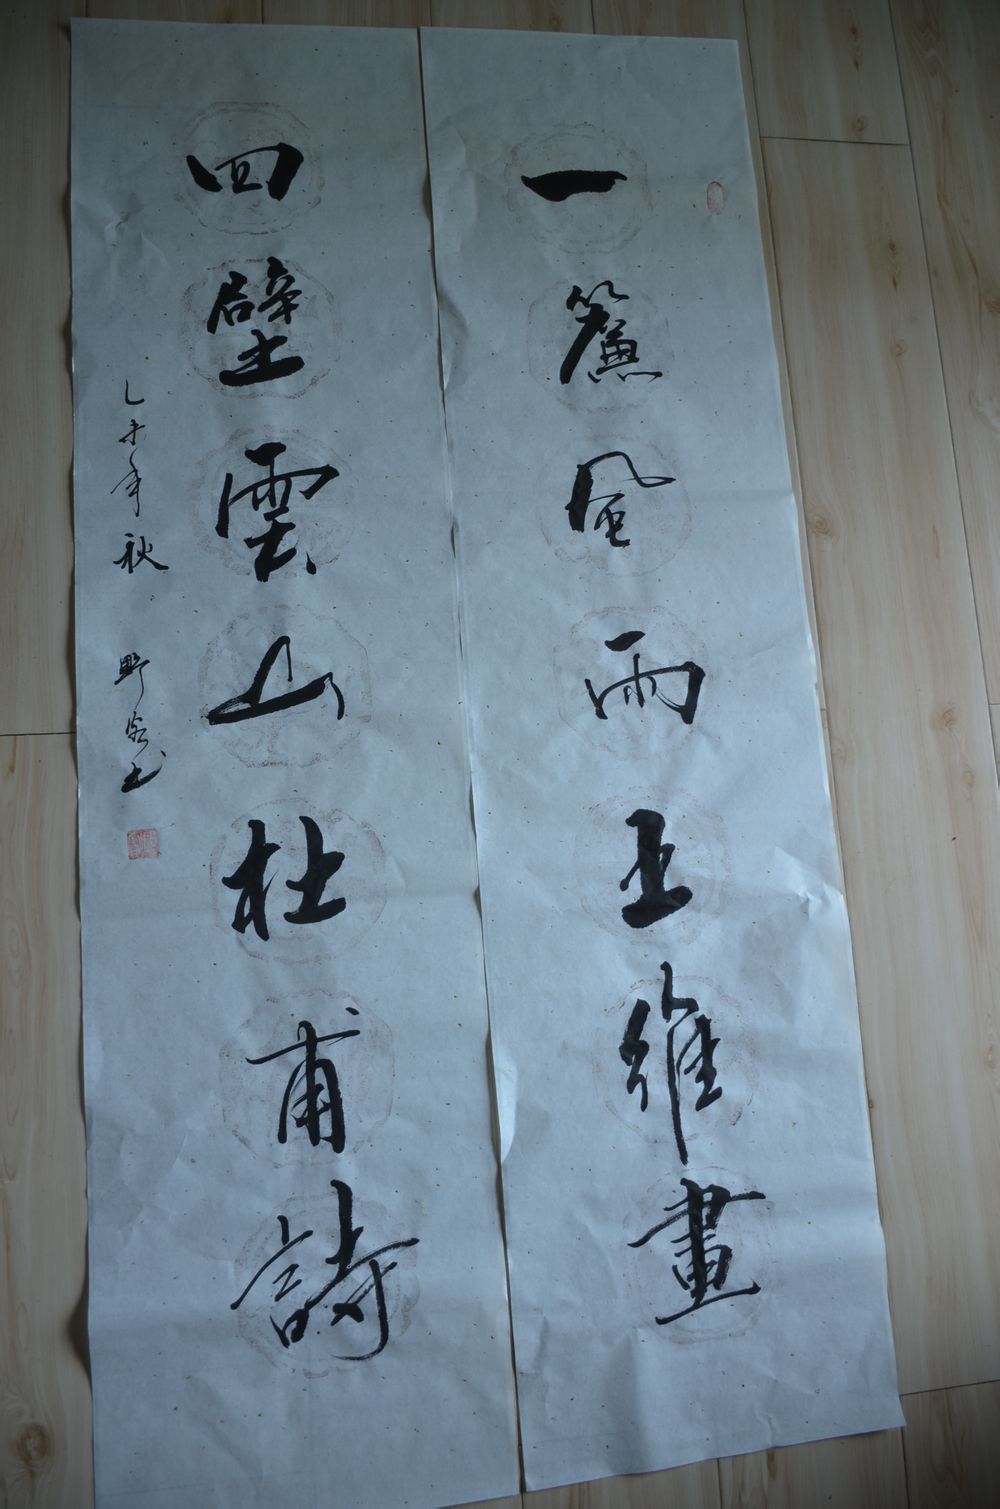 一簾風雨王維畫
四壁雲山杜甫詩
乙未年秋 野客書